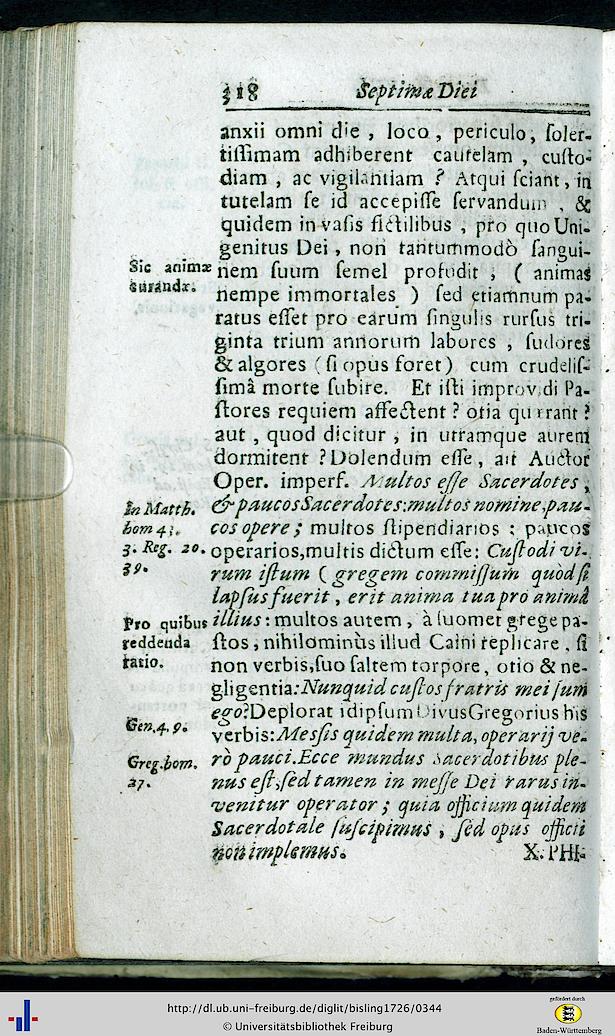 318 Septimæ Diei
anxii omni die , loco , periculo , ſoler-
tiſſimam adhiberent cautelam , cuſto-
diam , ac vigilantiam ? Atqui ſciant, in
tutelam ſe id accepiſſe ſervandum , &
quidem in vaſis fictilibus , pro quo Uni-
genitus Dei , non tantummodò ſangui-
Sic animæ
curandæ.
nem ſuum ſemel profudit , ( animas
nempe immortales ) ſed etiamnum pa-
ratus eſſet pro earum ſingulis rurſus tri-
ginta trium annorum labores , ſudores
& algores ( ſi opus foret) cum crudeliſ-
ſimâ morte ſubire. Et iſti improvidi Pa-
ſtores requiem affectent ? otia quærant ?
aut , quod dicitur , in utramque aurem
dormitent ? Dolendum eſſe , ait Auctor
Oper. imperf. Multos eſſe Sacerdotes ,
In Matth.
hom 43.
& paucos Sacerdotes: multos nomine, pau-
cos opere ; multos ſtipendiarios : paucos
3. Reg. 20.
39.
operarios, multis dictum eſſe: Cuſtodi vi-
rum iſtum ( gregem commiſſum quòd ſi
lapſus fuerit , erit anima tua pro animâ
Pro quibus
reddenda
ratio.
illius : multos autem , à ſuomet grege pa-
ſtos , nihilominùs illud Caini replicare , ſi
non verbis, ſuo ſaltem torpore , otio & ne-
gligentia: Nunquid cuſtos fratris mei ſum
Gen. 4. 9.
ego? Deplorat idipſum Divus Gregorius his
verbis: Meſſis quidem multa, operarij ve-
Greg. hom.
27.
rò pauci. Ecce mundus Sacerdotibus ple-
nus eſt, ſed tamen in meſſe Dei rarus in-
venitur operator ; quia officium quidem
Sacerdotale ſuſcipimus , ſed opus officii
non implemus.
X. PHI-
http://dl.ub.uni-freiburg.de/diglit/bisling1726/0344
© Universitätsbibliothek Freiburg
gefördert durch
Baden-Württemberg